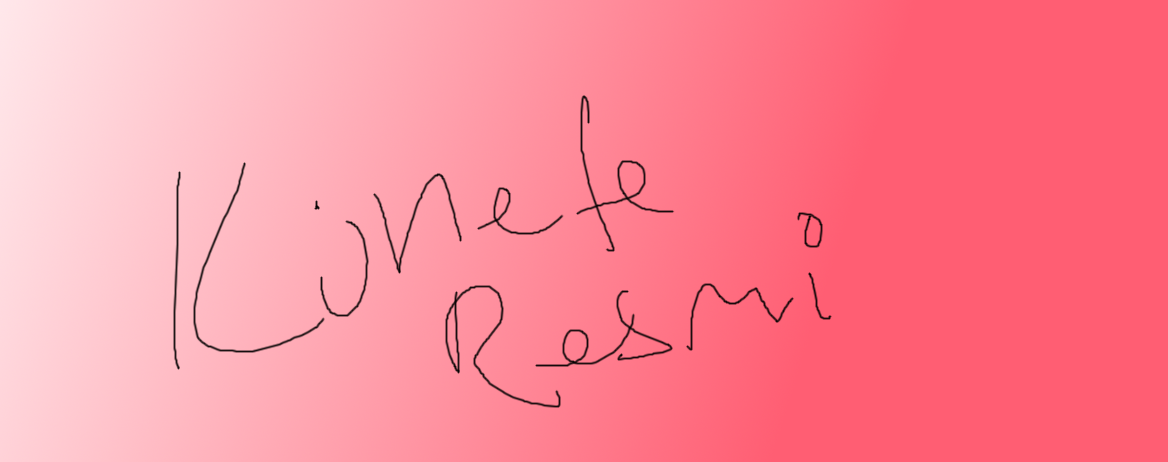 Künefe
Resmi